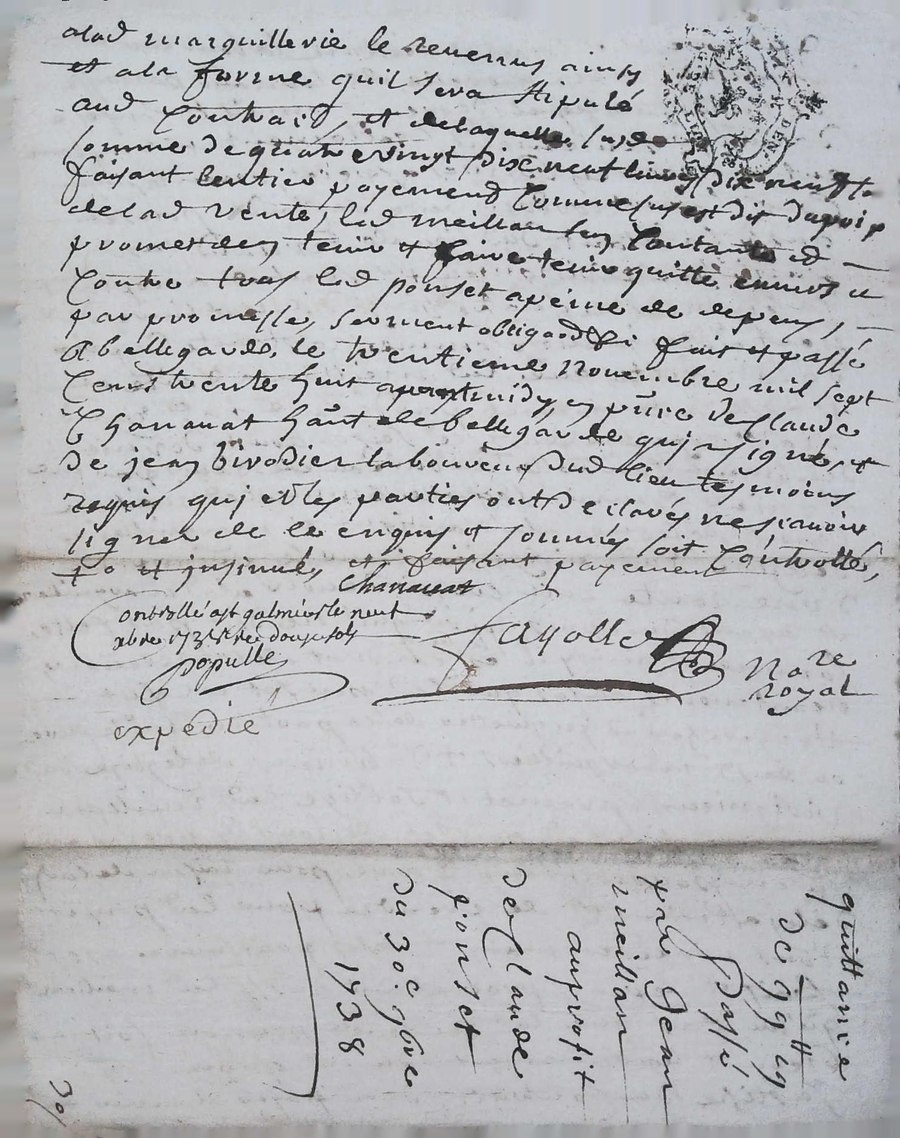 alad marguillerie le revenus ainsy
et ala forme quil sera stipulé
aud Contraid, et delaquelle susde
somme de quatre vingt dix neuf livres dix neuf s.
faisant lentier payement Comme susest dit du prix
delad vente, led meillan sen Contante et
promet den tenir et faire tenir quitte envers et
Contre tous led ponset apeine de depens,
par promesse, serment obligaõns &i fait et passé
A bellegarde, le trentieme novembre mil sept
Cens trente huit avant midy en pñce de Claude
Charavat haut de bellegarde quj a signé, et
de jean birodier laboureur dud lieu tesmoins
requis quj et les parties ont declarés ne scavoir
signer de ce enquis et sommés soit Controllé,
et insinués et faisant payement
Charavat
Controllé a st galmier le neuf
xbre 1738 reçeu douze sols
populle
fayolle
No.re
royal
expedié
quittance
de 99ᵗᵗ 19
passé
par Jean
meillan
au profit
de Claude
ponset
du 30e 9bre
1738
30